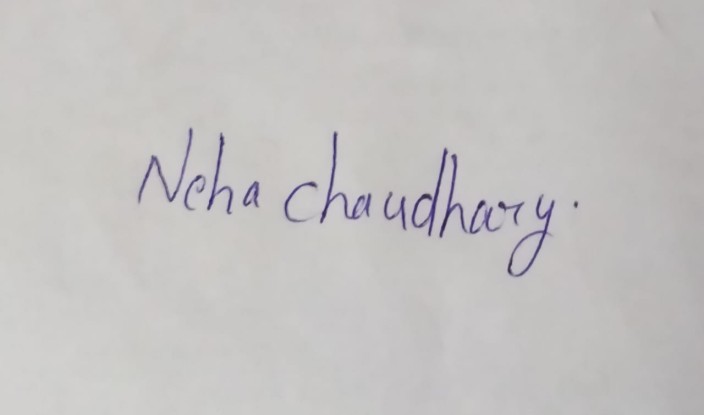 Neha chaudhary.